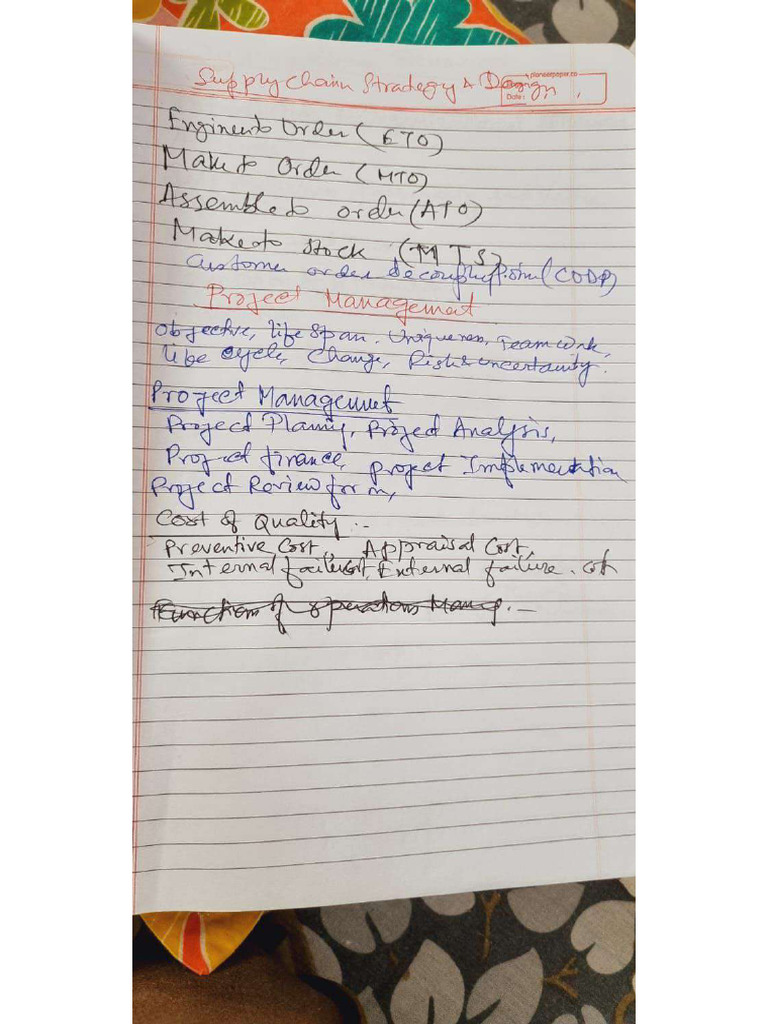 pioneerpaper.co
Date:
Supply Chain Strategy & Design.
Engineer to Order (ETO)
Make to Order (MTO)
Assemble to order (ATO)
Make to Stock (MTS)
Customer order decoupling Point (CODP)
Project Management
Objective, life Span, Uniqueness, Team work,
life cycle, Change, Risk & uncertainty.
Project Management
Project Planning, Project Analysis,
Project finance, project Implementation
Project Review form,
Cost of Quality :-
Preventive Cost, Appraisal Cost,
Internal failure cost, External failure. cost
Function of operations Manag. -